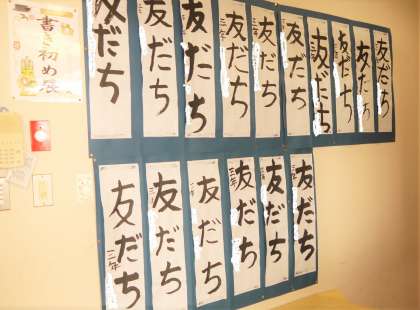 書き初め展
友だち
友だち
友だち
友だち
友だち
友だち
友だち
友だち
友だち
友だち
友だち
三年
友だち
友だち
友だち
三年
友だち
友だち